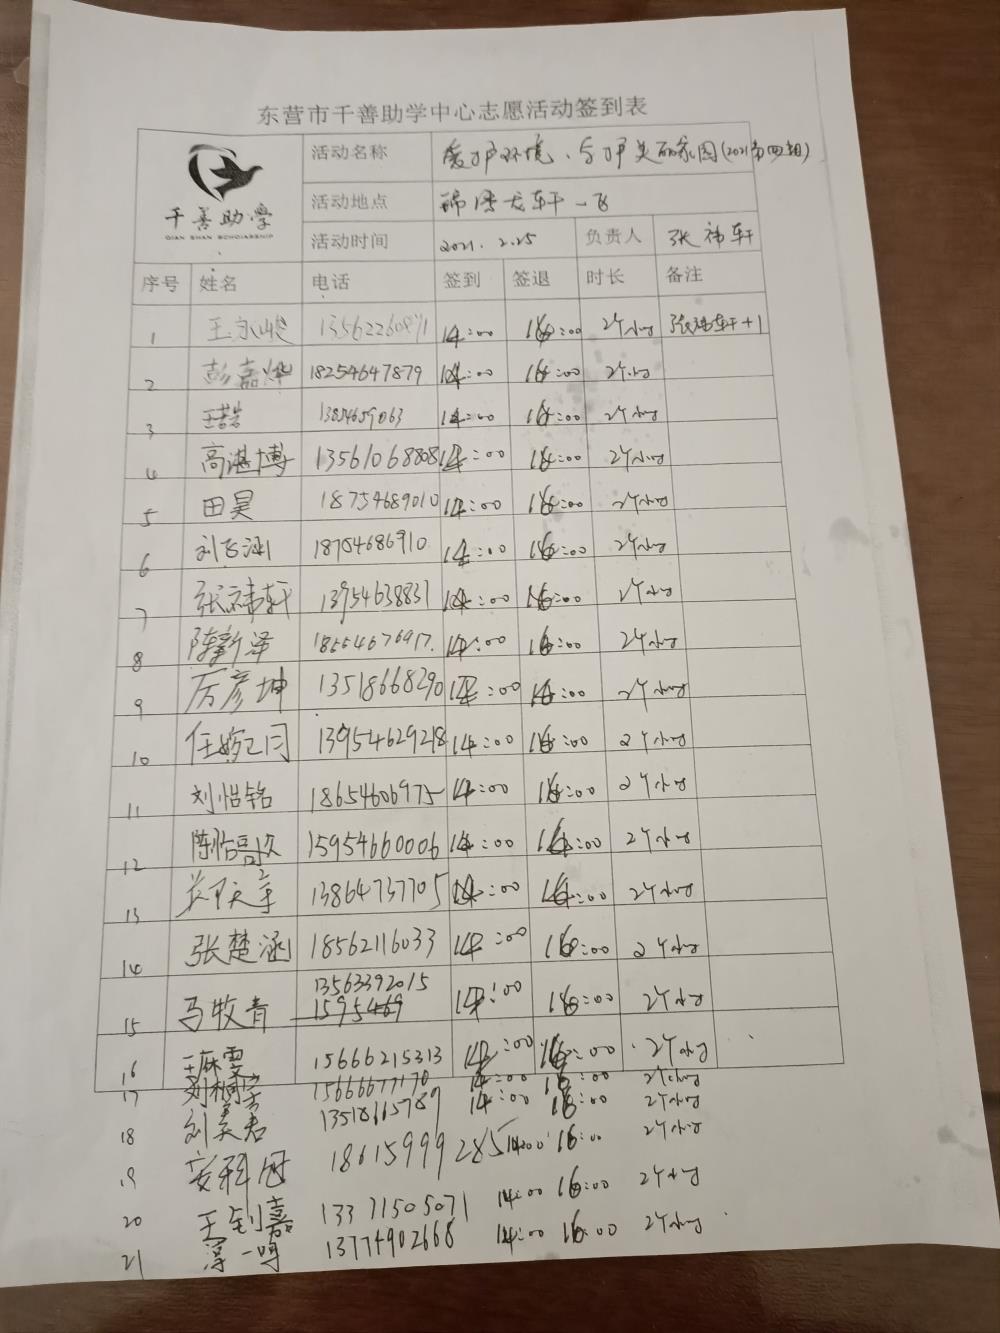 东营市千善助学中心志愿活动签到表
千善助学
QIAN SHAN SCHOLARSHIP
活动名称 爱护环境、守护美丽家园(2021第四期)
活动地点
活动时间 2021.2.25 负责人 张祎轩
序号 姓名 电话 签到 签退 时长 备注
1 王永峻 14:00 16:00 2个小时 张祎轩+1
2 彭嘉烨 18254647879 14:00 16:00 2个小时
3 13854659063 14:00 16:00 2个小时
4 高湛博 13561068808 14:00 16:00 2个小时
5 田昊 18754689010 14:00 16:00 2个小时
6 18754686910 14:00 16:00 2个小时
7 张祎轩 13954638831 14:00 16:00 2个小时
8 陈新泽 18554676917 14:00 16:00 2个小时
9 厉彦坤 13518668290 14:00 16:00 2个小时
10 13954629218 14:00 16:00 2个小时
11 刘怡铭 18654606975 14:00 16:00 2个小时
12 15954660006 14:00 16:00 2个小时
13 13864737705 14:00 16:00 2个小时
14 张楚涵 18562116033 14:00 16:00 2个小时
15 马牧青 13563392015 14:00 16:00 2个小时
16 15666215313 14:00 16:00 2个小时
17 15666677170 14:00 16:00 2个小时
18 刘美君 13518615789 14:00 16:00 2个小时
19 安科冠 18615999285 14:00 16:00 2个小时
20 王钊嘉 13371505071 14:00 16:00 2个小时
21 淳一鸣 13774902668 14:00 16:00 2个小时